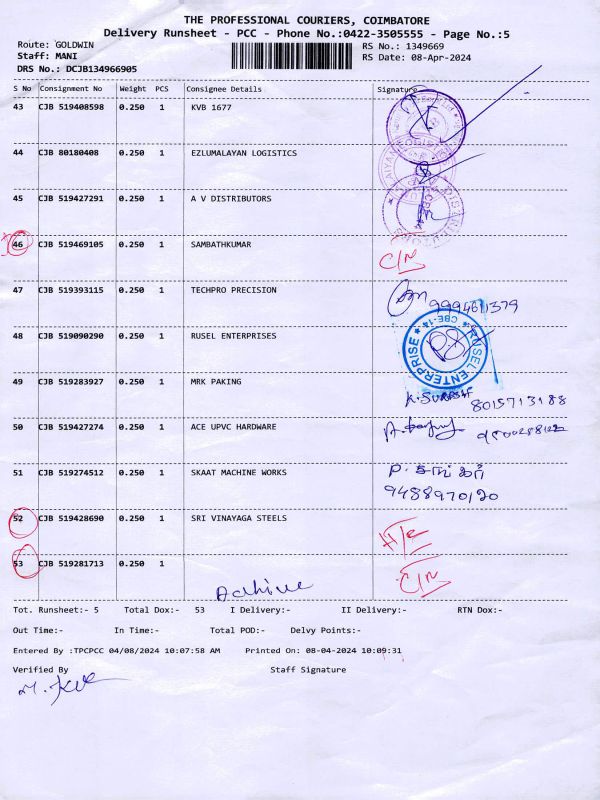 THE PROFESSIONAL COURIERS, COIMBATORE
Delivery Runsheet - PCC - Phone No.:0422-3505555 - Page No.:5
Route: GOLDWIN RS No.: 1349669
Staff: MANI RS Date: 08-Apr-2024
DRS No.: DCJB134966905
S No Consignment No Weight PCS Consignee Details Signature
43 CJB 519408598 0.250 1 KVB 1677
44 CJB 80180408 0.250 1 EZLUMALAYAN LOGISTICS
45 CJB 519427291 0.250 1 A V DISTRIBUTORS
46 CJB 519469105 0.250 1 SAMBATHKUMAR C/N
47 CJB 519393115 0.250 1 TECHPRO PRECISION 9994611379
48 CJB 519090290 0.250 1 RUSEL ENTERPRISES RUSEL ENTERPRISE ★ CBE-14 ★
49 CJB 519283927 0.250 1 MRK PAKING K. SURESH 8015713188
50 CJB 519427274 0.250 1 ACE UPVC HARDWARE
51 CJB 519274512 0.250 1 SKAAT MACHINE WORKS
9488970120
52 CJB 519428690 0.250 1 SRI VINAYAGA STEELS
53 CJB 519281713 0.250 1 C/N
Tot. Runsheet:- 5 Total Dox:- 53 I Delivery:- II Delivery:- RTN Dox:-
Out Time:- In Time:- Total POD:- Delvy Points:-
Entered By :TPCPCC 04/08/2024 10:07:58 AM Printed On: 08-04-2024 10:09:31
Verified By Staff Signature